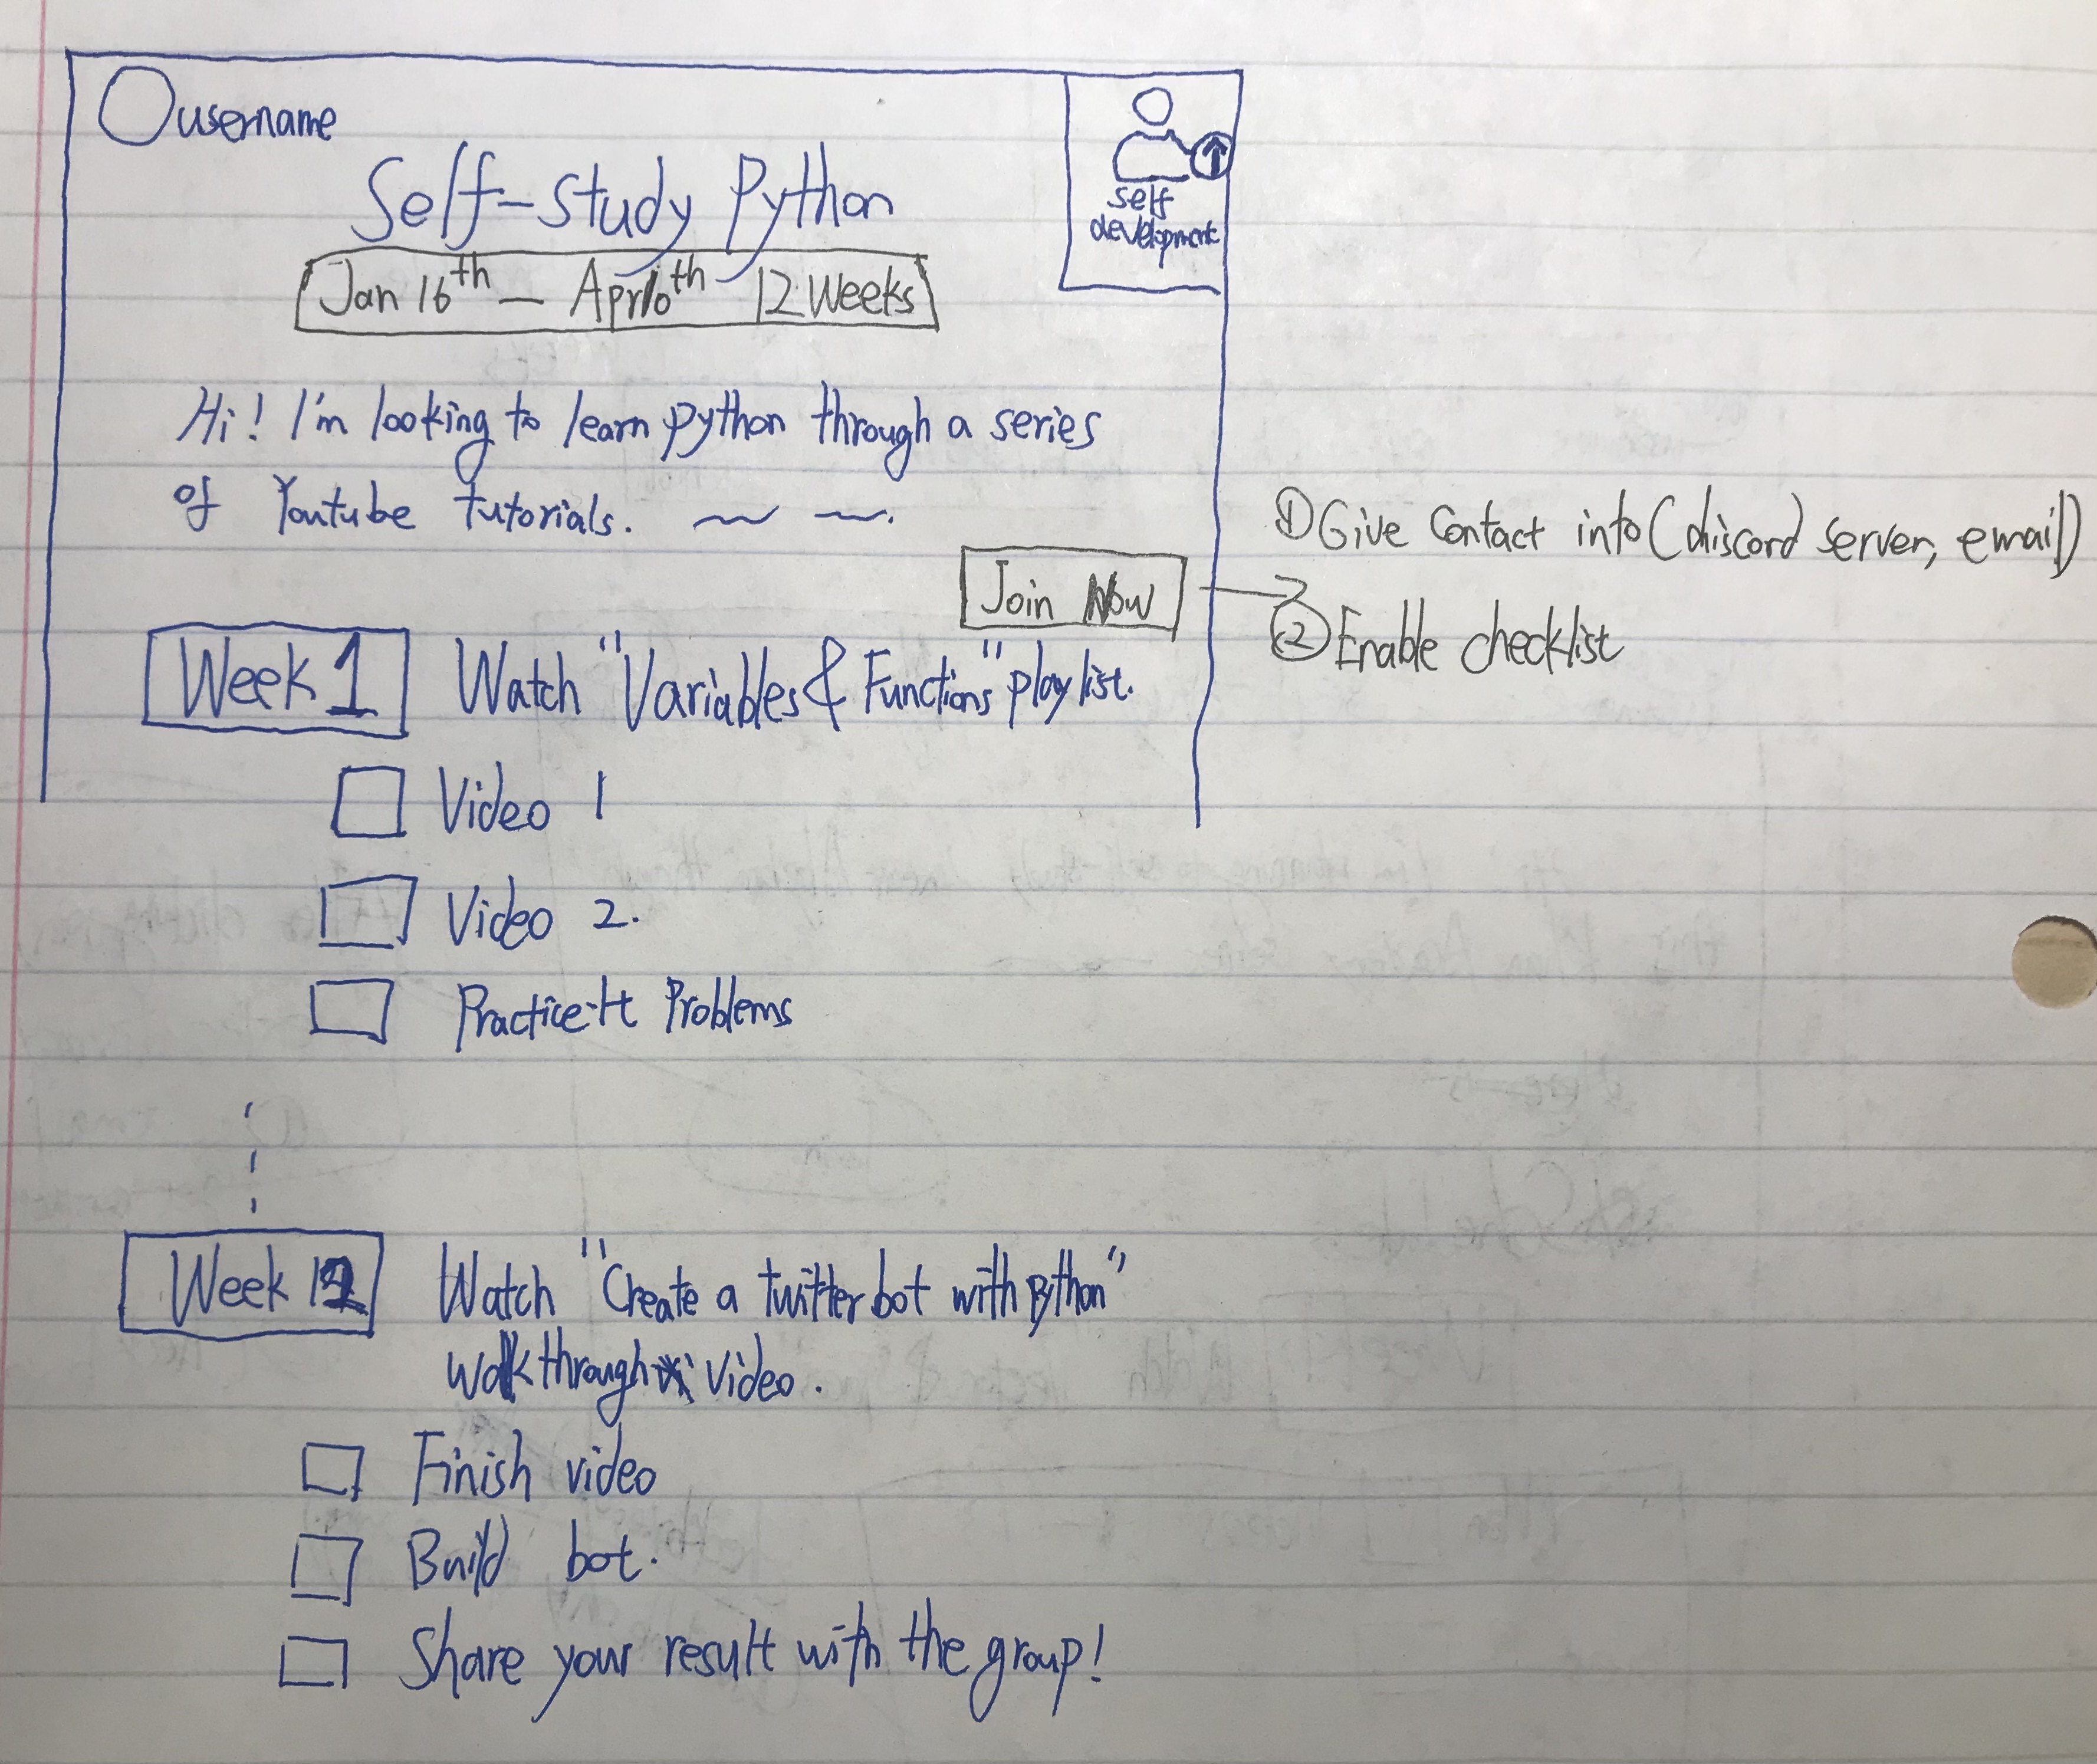 username
self
development
Self-Study Python
Jan 16th — Apr 10th 12 Weeks
Hi! I'm looking to learn python through a series
of Youtube tutorials.
Join Now
① Give Contact info (discord server, email)
② Enable checklist
Week 1 Watch "Variables & Functions" playlist.
Video 1
Video 2.
Practice-It Problems
Week 12 Watch "Create a twitter bot with python"
walkthrough video.
Finish video
Build bot.
Share your result with the group!